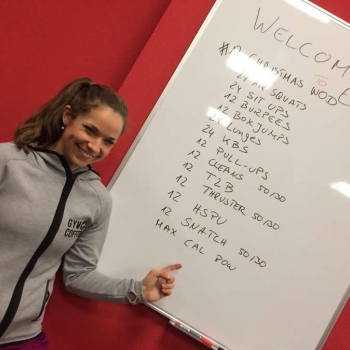 WELCOME
TO
CHRISTMAS WOD
24 AIR SQUATS
24 SIT UPS
12 BURPEES
12 BOX JUMPS
24 Lunges
24 KBS
12 PULL-UPS
12 CLEANS 50/30
12 T2B
12 THRUSTER 50/30
12 HSPU
12 SNATCH 50/30
MAX CAL ROW
GYM
COFFEE